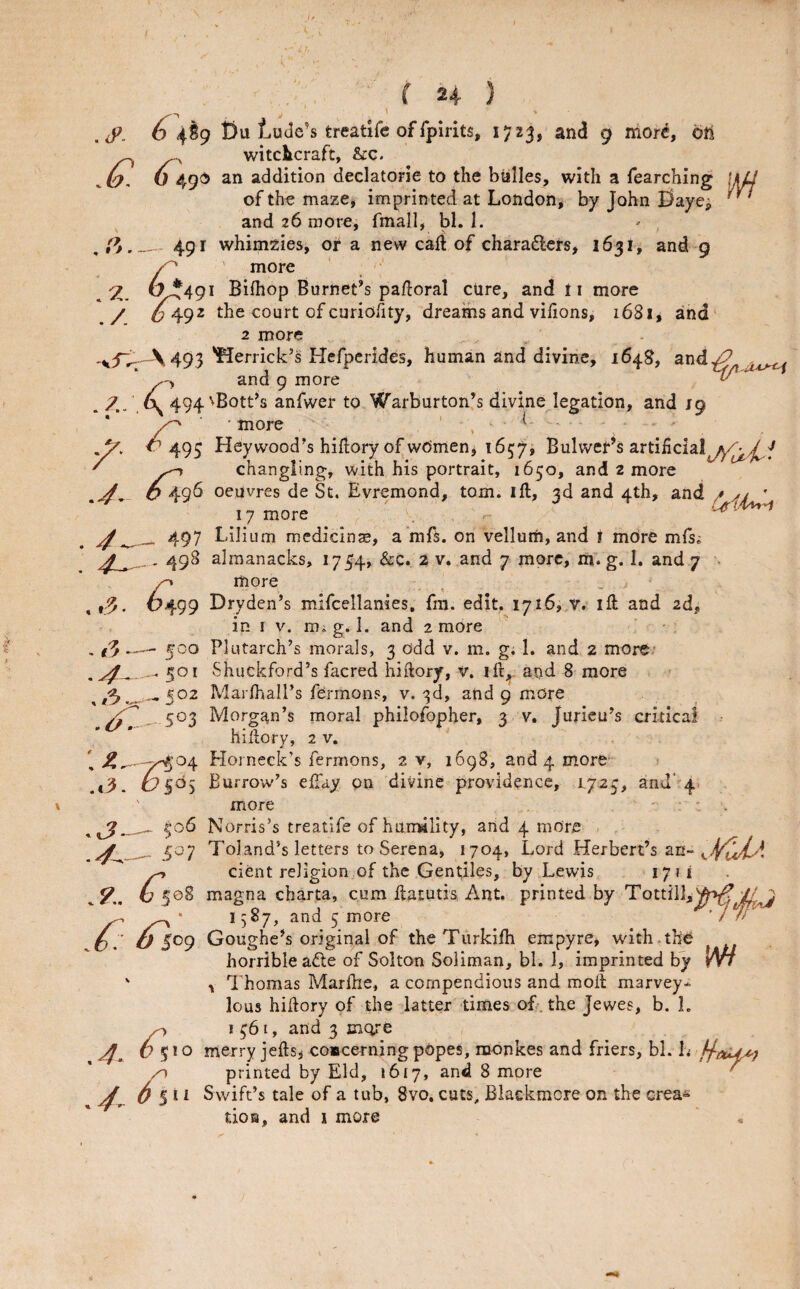 ( 24 )
. 8. 6 489 Du Lude's treatise of spirits, 1723, and 9 more, on
witchcraft, &c.
. 6. 6 490 an addition declatorie to the bulles, with a searching WH
of the maze, imprinted at London, by John Daye,
and 26 more, small, bl. l.
. 3. — 491 whimzies, or a new cast of characters, 1631, and 9
more
. 2. 6 *491 Bishop Burnet's pastoral cure, and 11 more
. 1 6 492 the court of curiosity, dreams and visions, 1681, and
2 more
493 Herrick's Hesperides, human and divine, 1648, and
and 9 more
. 2. 6 494 Bott's answer to Warburton's divine legation, and 19
more
. 7. 6 495 Heywood's history of women, 1657, Bulwer's artificial
changling, with his portrait, 1650, and 2 more
. 4. 6 496 oeuvres de St. Evremond, tom. 1st, 3d and 4th, and
17 more
. 4 — 497 Lilium medicinæ, a mfs. on vellum, and 1 more mfs.
4 — 498 almanacks, 1754, &c. 2 v. and 7 more, m. g. l. and 7
more
. 3. 6 499 Dryden's miscellanies, sm. edit. 1716, v. 1st and 2d,
in 1 v. m. g. l. and 2 more
. 3 — 500 Plutarch's morals, 3 odd v. m. g. l. and 2 more
. 4. — 501 Shuckford's sacred history, v. 1st, and 8 more
. 3 — 502 Marshall's sermons, v. 3d, and 9 more
. 6. — 503 Morgan's moral philosopher, 3 v. Jurieu's critical
history, 2 v.
. 2. — 504 Horneck's sermons, 2 v, 1698, and 4 more
. 3. 6 505 Burrow's essay on divine providence, 1725, and 4
more
. 3. — 506 Norris's treatise of humility, and 4 more
. 4. — 507 Toland's letters to Serena, 1704, Lord Herbert's an-
cient religion of the Gentiles, by Lewis 1711
. 2. 6 508 magna charta, cum statutis Ant. printed by Tottill,
1587, and 5 more
. 6. 6 509 Goughe's original of the Turkish empyre, with the
horrible acte of Solton Soliman, bl. l, imprinted by WH
Thomas Marshe, a compendious and most marvey-
lous history of the latter times of the Jewes, b. l.
1561, and 3 more
. 4. 6 510 merry jests, concerning popes, monkes and friers, bl. l.
printed by Eld, 1617, and 8 more
. 4. 6 511 Swift's tale of a tub, 8vo. cuts, Blackmore on the crea-
tion, and 1 more